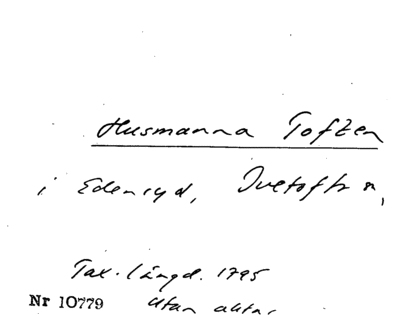 Husmanna Toften
i Edenryd, Ivetofta n,
Tax. längd. 1795
Nr 10779 Utan aktnr